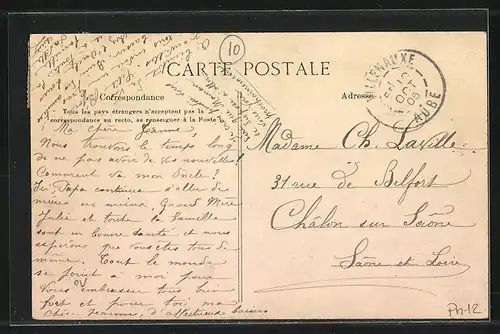 10
CARTE POSTALE
Correspondance
Adresse
Tous les pays étrangers n'acceptent pas la
correspondance au recto, se renseigner à la Poste
VILLENAUXE
OCT
05
AUBE
Ma chère Jeanne,
Nous trouvons le temps long
de ne pas avoir de vos nouvelles!
Comment va mon Oncle?
Ici Papa continue d'aller de
mieux en mieux. Grand Mère
Julie et toute la famille
sont en bonne santé et nous
espérons que vous êtes tous de
même. Tout le monde
se joint à moi pour
vous embrasser tous bien
fort et pour toi ma
chère Jeanne, d'affectueux baisers
Madame Ch. Laville
31 rue de Belfort
Châlon sur Saône
Saône et Loire
Ph-12